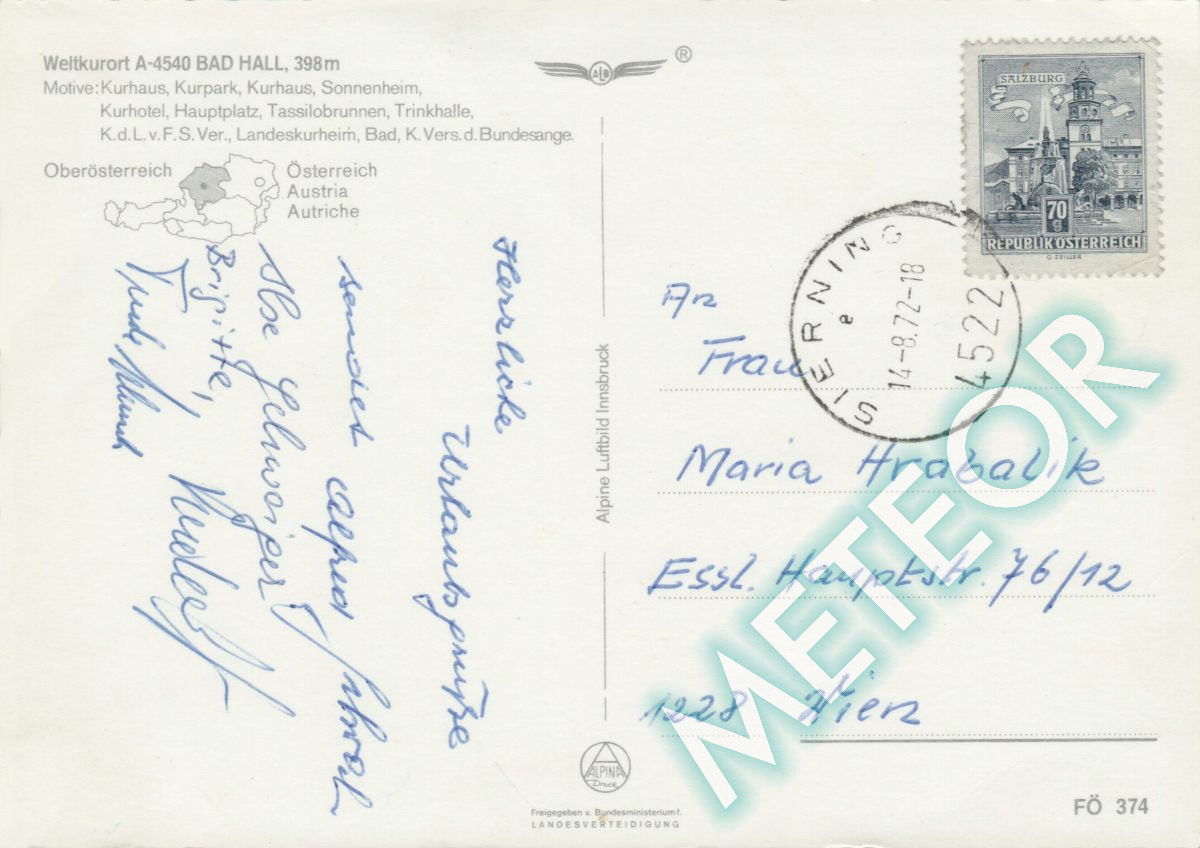 Weltkurort A-4540 BAD HALL, 398m
Motive: Kurhaus, Kurpark, Kurhaus, Sonnenheim,
Kurhotel, Hauptplatz, Tassilobrunnen, Trinkhalle,
K.d.L.v.F.S.Ver., Landeskurheim, Bad, K.Vers.d.Bundesange.
Oberösterreich
Österreich
Austria
Autriche
ALB ®
SALZBURG
70
g
REPUBLIK ÖSTERREICH
G. ZEILLER
SIERNING
e
14-8.72-18
4522
Herzliche
Urlaubsgrüße
sendet
Ilse
Brigitte,
Alpine Luftbild Innsbruck
An
Frau
Maria Hrabalik
Essl. Hauptstr. 76/12
1228 Wien
METEOR
ALPINA
Druck
Freigegeben v. Bundesministerium f.
LANDESVERTEIDIGUNG
FÖ 374